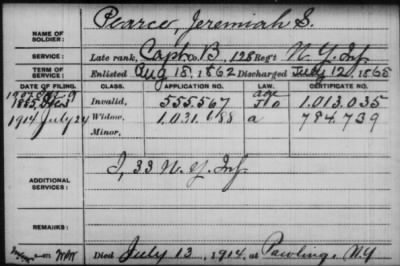 Pearce, Jeremiah S.
NAME OF SOLDIER:
SERVICE: Late rank, Capt. B, 128 Reg't N.Y. Inf
TERM OF SERVICE: Enlisted Aug 18, 1862 Discharged July 12, 1865
DATE OF FILING. CLASS. APPLICATION NO. LAW. CERTIFICATE NO.
Invalid, 555.567 1.013.035
1914 July 24 Widow, 1.031.688 a 784.739
Minor.
ADDITIONAL SERVICES: I, 33 N.Y. Inf
REMARKS:
Died July 13, 1914, at Pawling, N.Y.